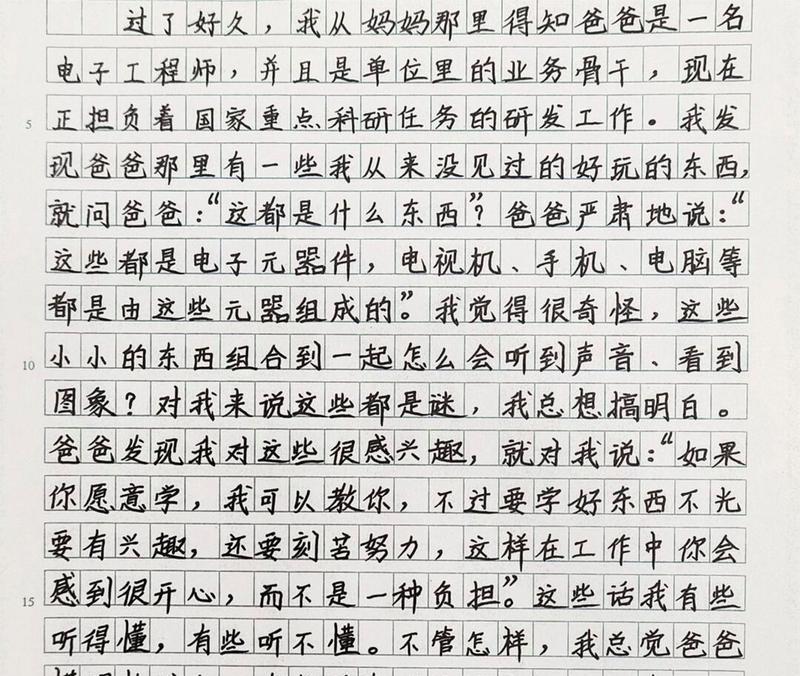 过了好久，我从妈妈那里得知爸爸是一名
电子工程师，并且是单位里的业务骨干，现在
5 正担负着国家重点科研任务的研发工作。我发
现爸爸那里有一些我从来没见过的好玩的东西，
就问爸爸：“这都是什么东西”？爸爸严肃地说：“
这些都是电子元器件，电视机、手机、电脑等
都是由这些元器组成的”。我觉得很奇怪，这些
10 小小的东西组合到一起怎么会听到声音、看到
图象？对我来说这些都是谜，我总想搞明白。
爸爸发现我对这些很感兴趣，就对我说：“如果
你愿意学，我可以教你，不过要学好东西不光
要有兴趣，还要刻苦努力，这样在工作中你会
15 感到很开心，而不是一种负担”。这些话我有些
听得懂，有些听不懂。不管怎样，我总觉爸爸